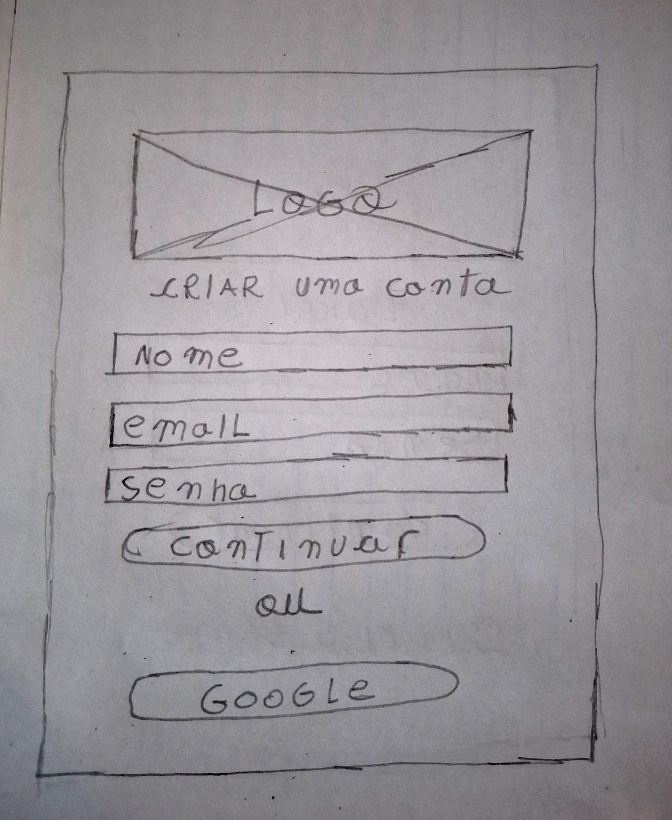 LOGO
CRIAR uma conta
Nome
emaIL
senha
conTINuar
ou
GOOGLe